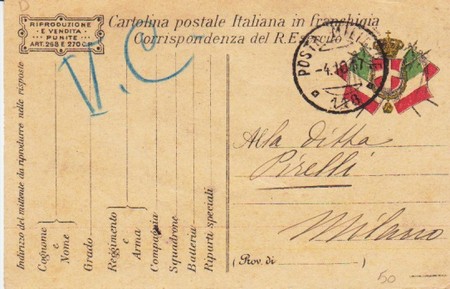 RIPRODUZIONE
E VENDITA
PUNITE
ART. 268 E 270 C.P.
Cartolina postale Italiana in franchigia
Corrispondenza del R. Esercito
V. C.
POSTA MILITARE
-4.10.17
118
Alla Ditta
Pirelli
Milano
(Prov. di )
Indirizzo del mittente da riprodurre nelle risposte
Cognome e Nome
Grado
Reggimento e Arma
Compagnia
Squadrone
Batteria
Riparti speciali
50